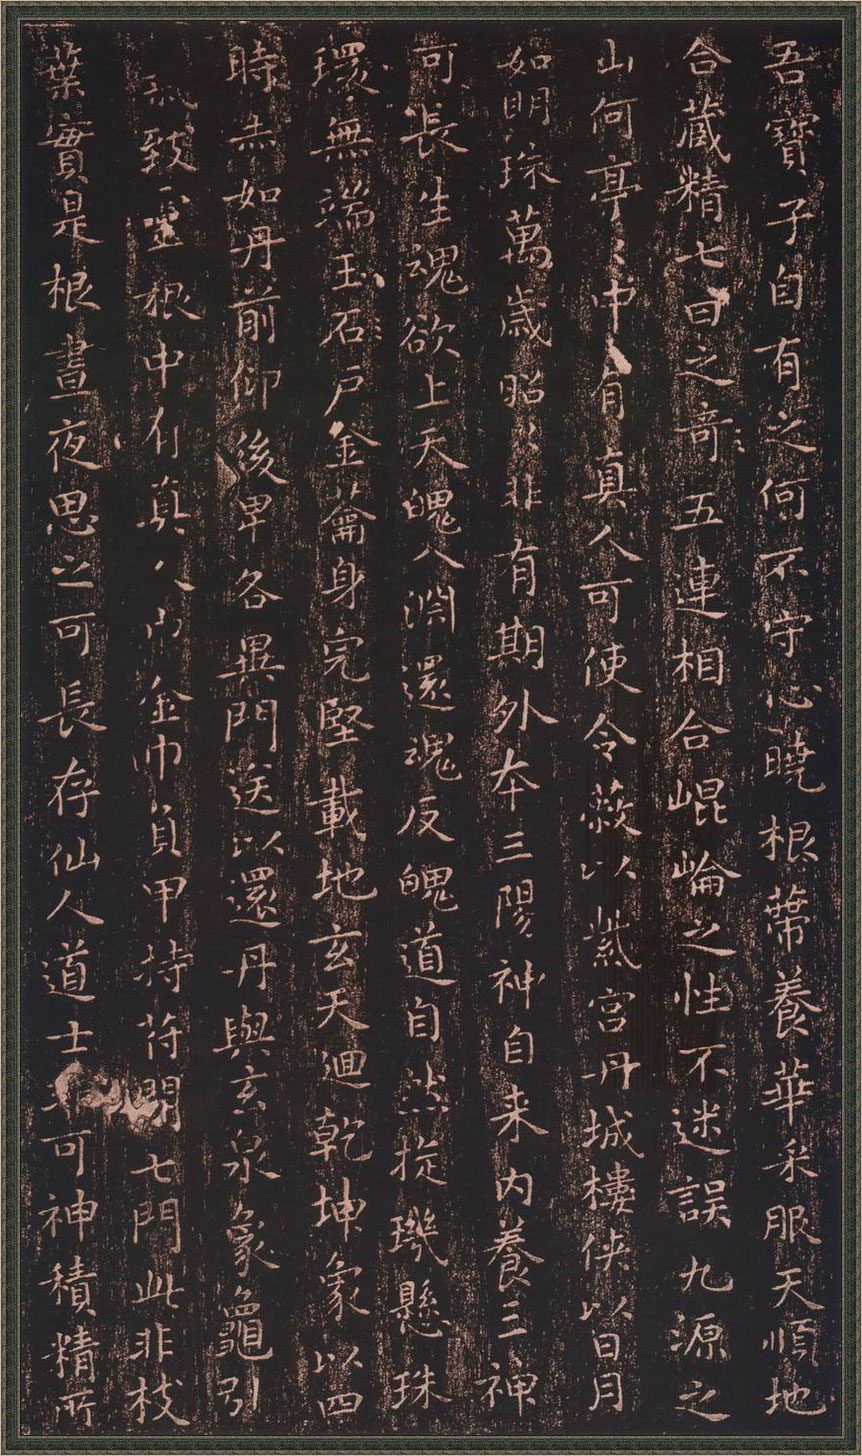 吾寶子自有之何不守心曉根蔕養華采服天順地
合藏精七日之奇五連相合崐崘之性不迷誤九源之
山何亭〻中有真人可使令蔽以紫宮丹城樓俠以日月
如明珠萬歲昭〻非有期外本三陽神自来内養三神
可長生魂欲上天魄入淵還魂反魄道自然旋璣懸珠
環無端玉石戶金籥身完堅載地玄天迴乾坤象以四
時赤如丹前仰後卑各異門送以還丹與玄泉象龜引
氣致靈根中有真人巾金巾負甲持苻開七門此非枝
葉實是根晝夜思之可長存仙人道士非可神積精所